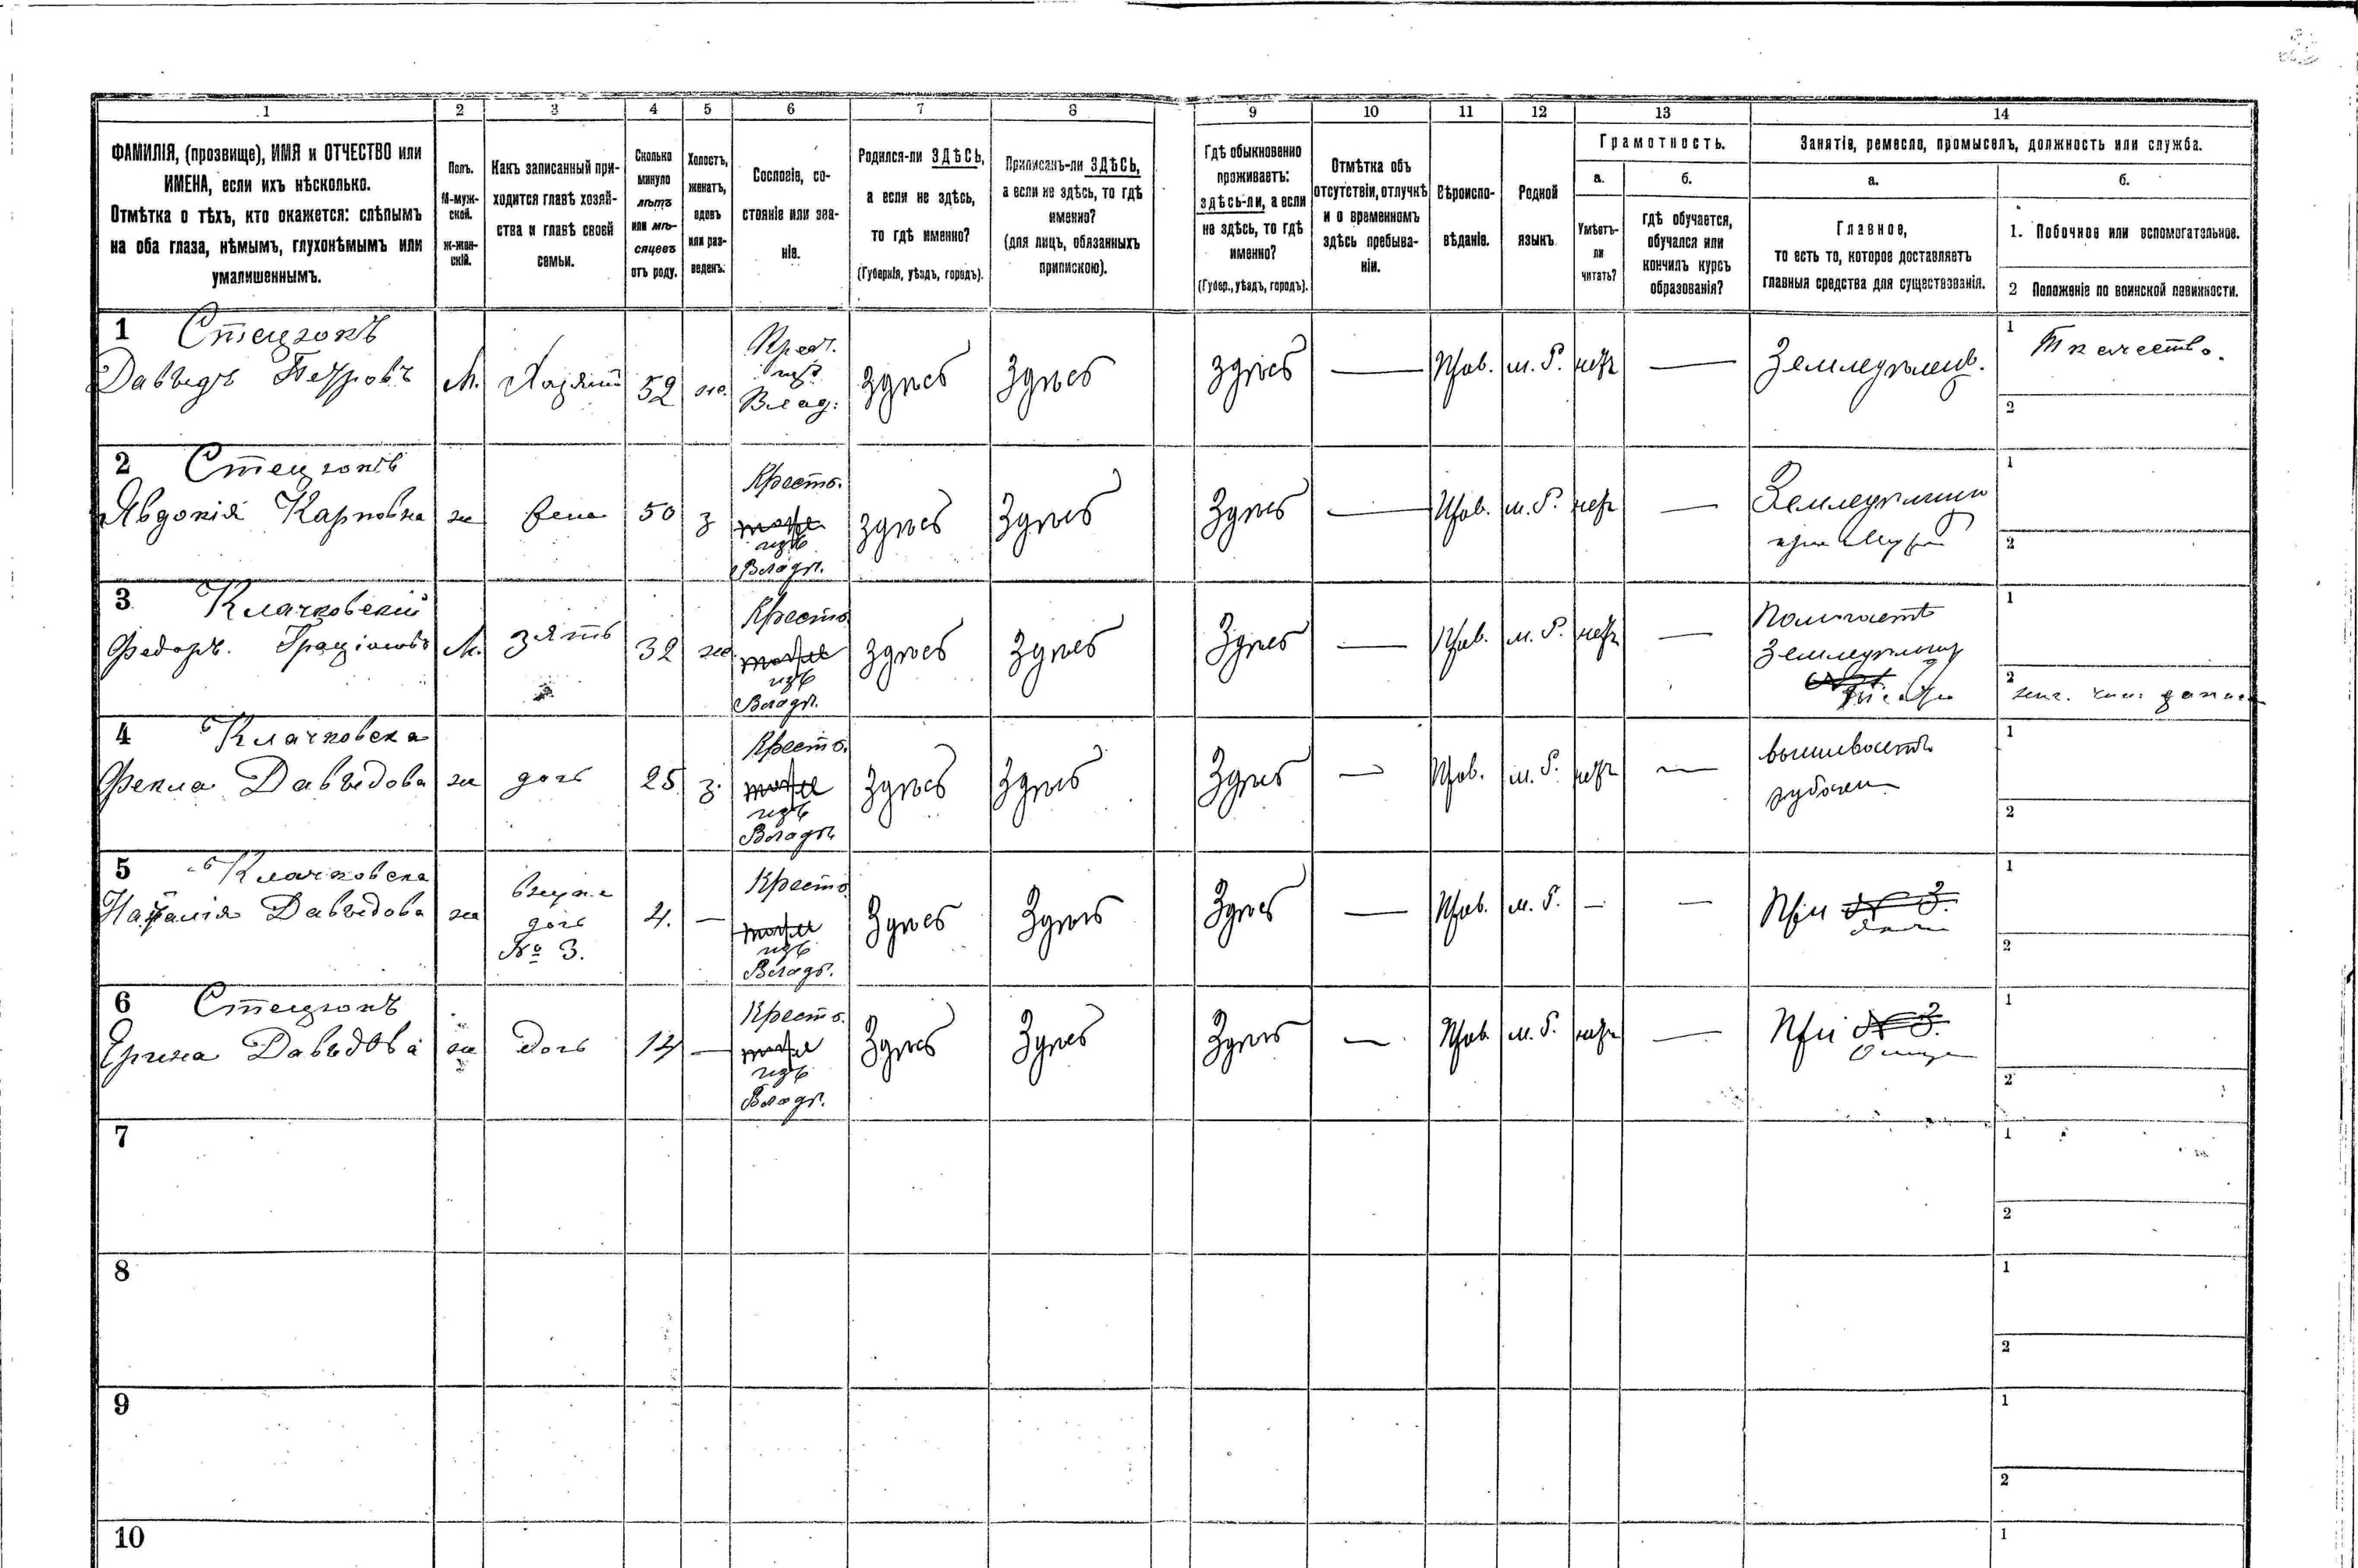 1 2 3 4 5 6 7 8 9 10 11 12 13 14
ФАМИЛІЯ, (прозвище), ИМЯ и ОТЧЕСТВО или
ИМЕНА, если ихъ нѣсколько.
Отмѣтка о тѣхъ, кто окажется: слѣпымъ
на оба глаза, нѣмымъ, глухонѣмымъ или
умалишеннымъ.
Полъ.
М-муж-
ской.
Ж-жен-
скій.
Какъ записанный при-
ходится главѣ хозяй-
ства и главѣ своей
семьи.
Сколько
минуло
лѣтъ
или мѣ-
сяцевъ
отъ роду.
Холостъ,
женатъ,
вдовъ
или раз-
веденъ.
Сословіе, со-
стояніе или зва-
ніе.
Родился-ли ЗДѢСЬ,
а если не здѣсь,
то гдѣ именно?
(Губернія, уѣздъ, городъ).
Приписанъ-ли ЗДѢСЬ,
а если не здѣсь, то гдѣ
именно?
(для лицъ, обязанныхъ
припискою).
Гдѣ обыкновенно
проживаетъ:
здѣсь-ли, а если
не здѣсь, то гдѣ
именно?
(Губер., уѣздъ, городъ).
Отмѣтка объ
отсутствіи, отлучкѣ
и о временномъ
здѣсь пребыва-
ніи.
Вѣроиспо-
вѣданіе.
Родной
языкъ.
Грамотность.
а.
Умѣетъ-
ли
читать?
б.
гдѣ обучается,
обучался или
кончилъ курсъ
образованія?
Занятіе, ремесло, промыселъ, должность или служба.
а.
Главное,
то есть то, которое доставляетъ
главныя средства для существованія.
б.
1. Побочное или вспомогательное.
2 Положеніе по воинской повинности.
1 Стецюкъ
Давыдъ Петровъ
М.
Хозяинъ
52
же.
Крест.
изъ
Влад.
здѣсь
здѣсь
здѣсь
—
Прав.
м. Р.
нетъ
—
Земледѣлец.
1 Ткачество.
2
2 Стецюкъ
Явдокія Карповна
ж
Жена
50
з
Кресть.
изъ
Владѣ.
здѣсь
Здѣсь
Здѣсь
—
Прав.
м. Р.
нетъ
—
Земледѣлица
при мужѣ
1
2
3 Клачковскій
Федоръ.
М.
зять
32
же.
Кресть.
изъ
Владѣ.
здѣсь
здѣсь
Здѣсь
—
Прав.
м. Р.
нетъ
—
Помогаетъ
Земледѣлцу
1
2
4 Клачковска
Фекла Давыдова
ж
дочь
25
з
Кресть.
изъ
Владѣ
здѣсь
здѣсь
Здѣсь
—
Прав.
м. Р.
нетъ
—
вышиваетъ
1
2
5 Клачковска
Наталія Давыдова
ж
внука
дочь
№ 3.
4.
—
Кресть
изъ
Владѣ.
Здѣсь
Здѣсь
Здѣсь
—
Прав.
м. Р.
—
—
При № 3.
1
2
6 Стецюкъ
Ерина Давыдова
ж
Дочь
14
—
Кресть.
изъ
Владѣ.
Здѣсь
Здѣсь
Здѣсь
—
Прав
м. Р.
нетъ
—
При № 3.
Отцу
1
2
7
1
2
8
1
2
9
1
2
10
1